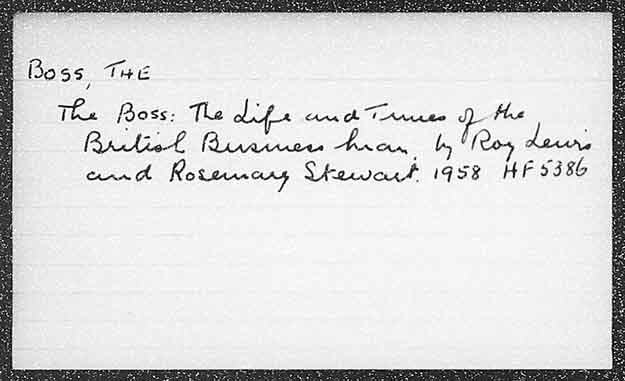 BOSS, THE
The Boss: The Life and Times of the
British Business Man, by Roy Lewis
and Rosemary Stewart. 1958 HF5386